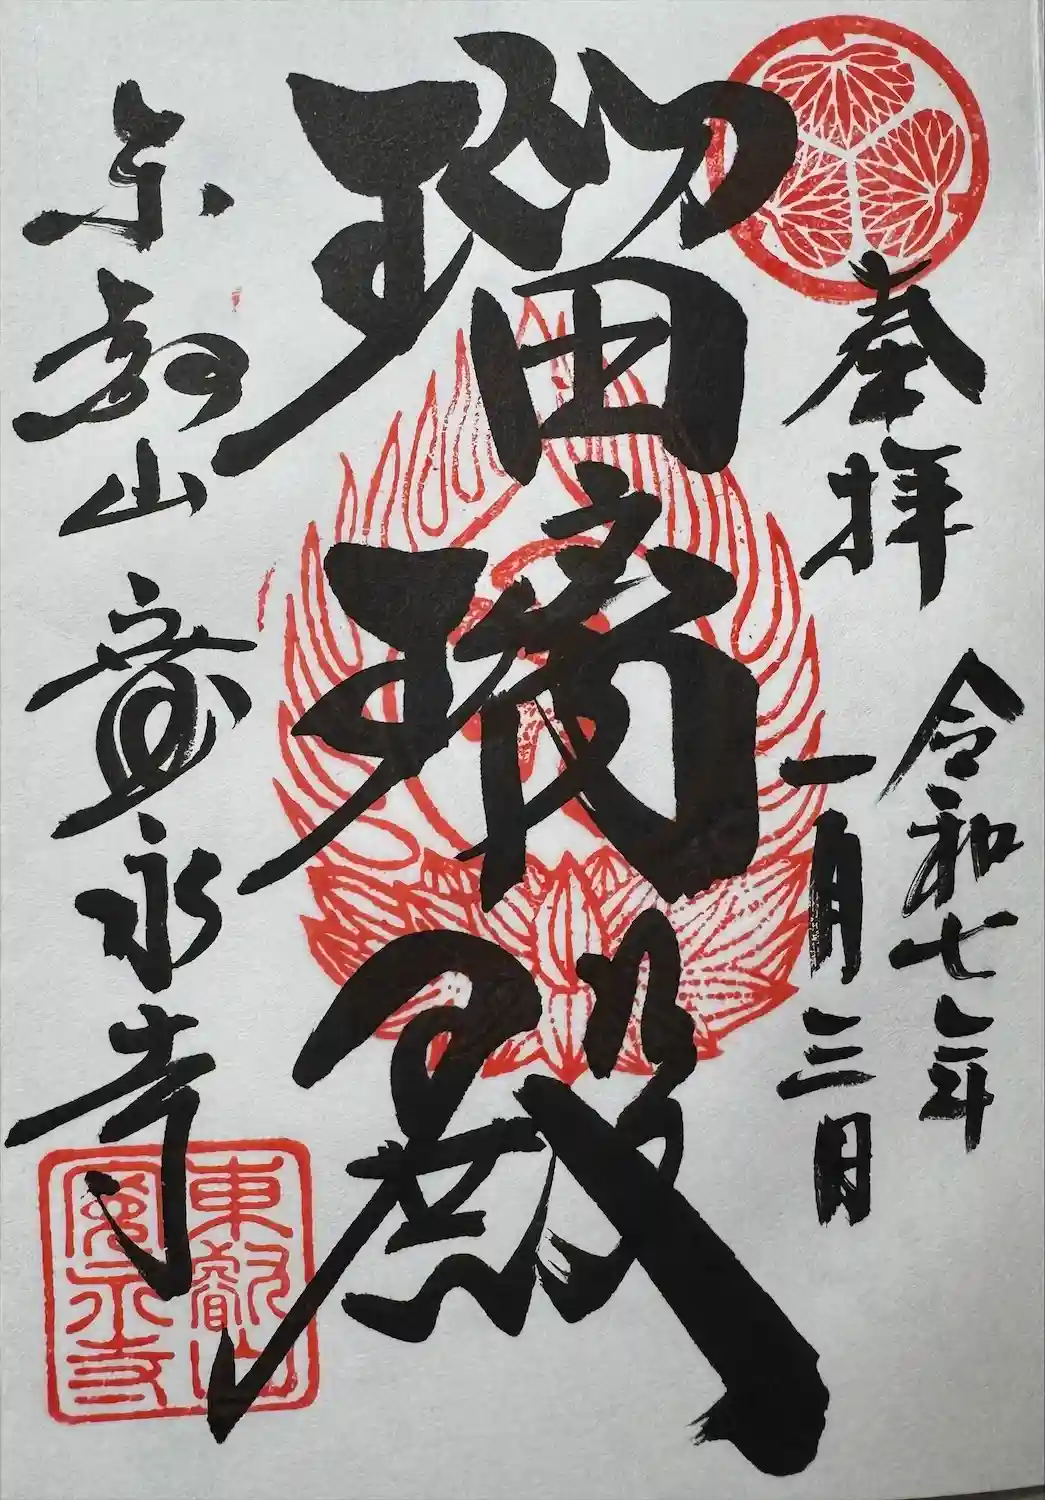 奉拝
令和七年
一月三日
瑠璃殿
東叡山 寛永寺
東叡山
寛永寺